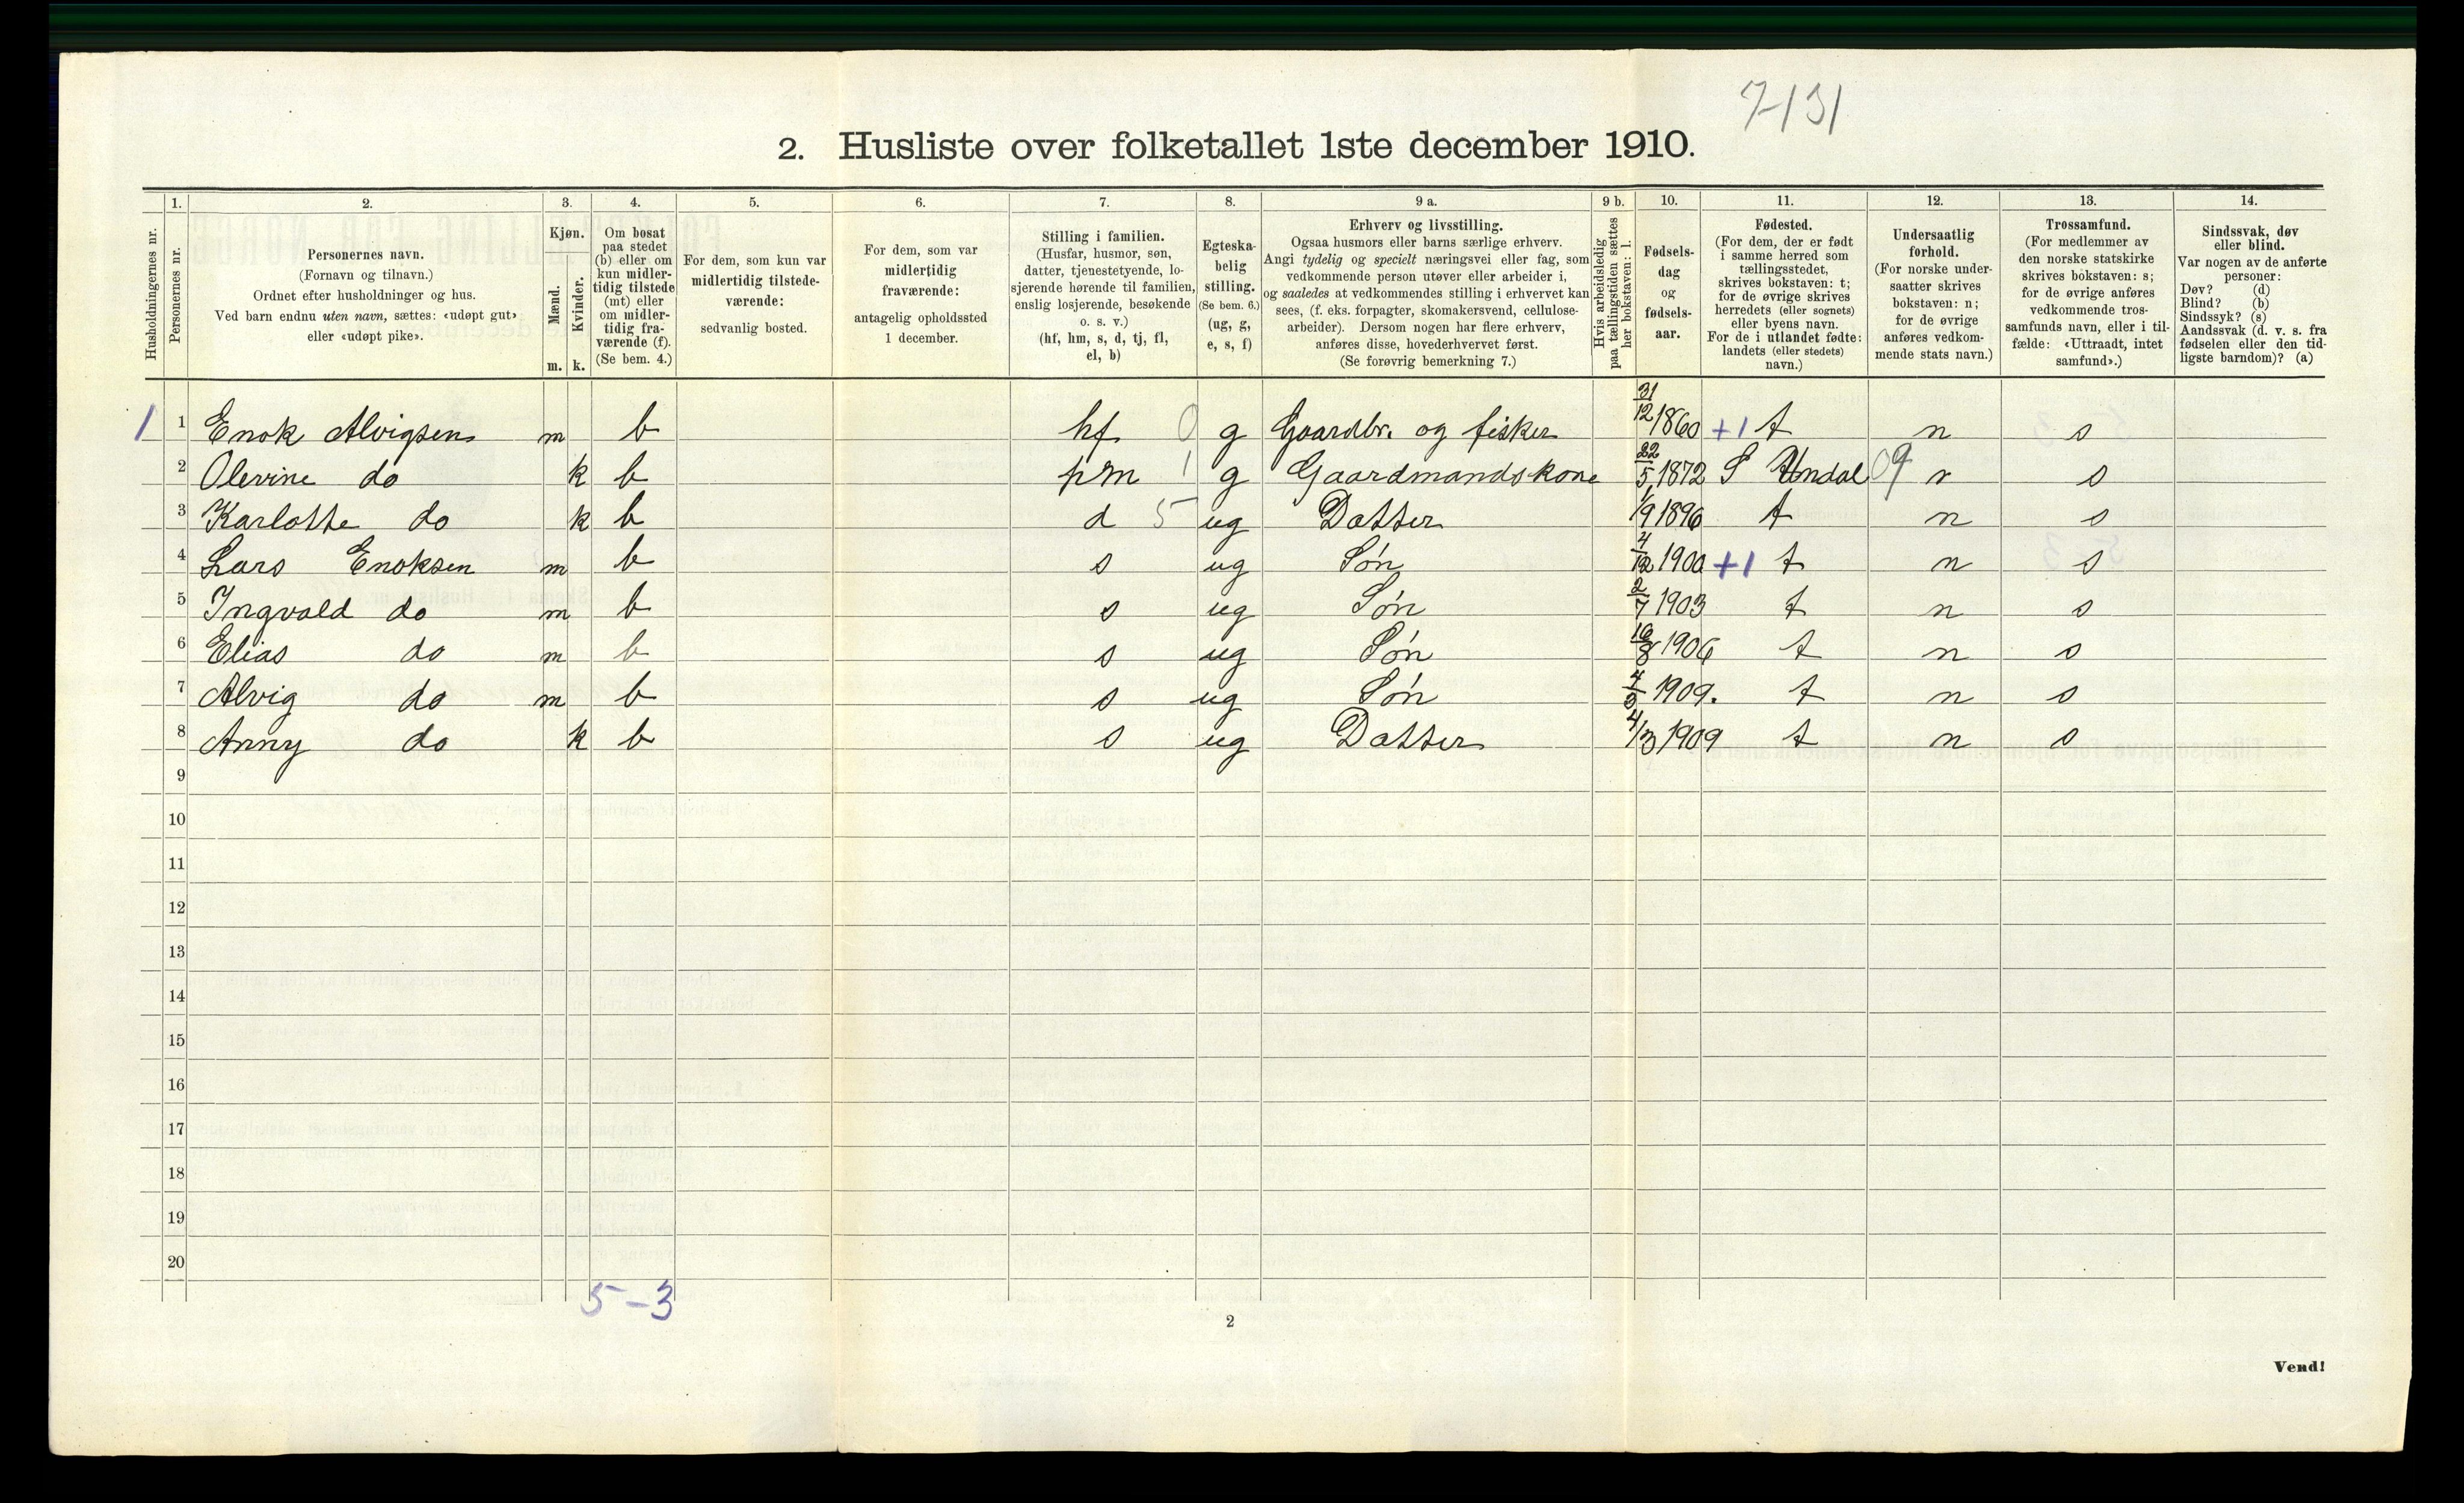 7131
2. Husliste over folketallet 1ste december 1910.
Husholdningernes nr.
1. Personernes nr.
2. Personernes navn.
(Fornavn og tilnavn.)
Ordnet efter husholdninger og hus.
Ved barn endnu uten navn, sættes: «udøpt gut»
eller «udøpt pike».
3. Kjøn.
Mænd. Kvinder.
m. k.
4. Om bosat
paa stedet
(b) eller om
kun midler-
tidig tilstede
(mt) eller
om midler-
tidig fra-
værende (f).
(Se bem. 4.)
5. For dem, som kun var
midlertidig tilstede-
værende:
sedvanlig bosted.
6. For dem, som var
midlertidig
fraværende:
antagelig opholdssted
1 december.
7. Stilling i familien.
(Husfar, husmor, søn,
datter, tjenestetyende, lo-
sjerende hørende til familien,
enslig losjerende, besøkende
o. s. v.)
(hf, hm, s, d, tj, fl,
el, b)
8. Egteska-
belig
stilling.
(Se bem. 6.)
(ug, g,
e, s, f)
9 a. Erhverv og livsstilling.
Ogsaa husmors eller barns særlige erhverv.
Angi tydelig og specielt næringsvei eller fag, som
vedkommende person utøver eller arbeider i,
og saaledes at vedkommendes stilling i erhvervet kan
sees, (f. eks. forpagter, skomakersvend, cellulose-
arbeider). Dersom nogen har flere erhverv,
anføres disse, hovederhvervet først.
(Se forøvrig bemerkning 7.)
9 b. Hvis arbeidsledig
paa tællingstiden sættes
her bokstaven: l.
10. Fødsels-
dag
og
fødsels-
aar.
11. Fødested.
(For dem, der er født
i samme herred som
tællingsstedet,
skrives bokstaven: t;
for de øvrige skrives
herredets (eller sognets)
eller byens navn.
For de i utlandet fødte:
landets (eller stedets)
navn.)
12. Undersaatlig
forhold.
(For norske under-
saatter skrives
bokstaven: n;
for de øvrige
anføres vedkom-
mende stats navn.)
13. Trossamfund.
(For medlemmer av
den norske statskirke
skrives bokstaven: s;
for de øvrige anføres
vedkommende tros-
samfunds navn, eller i til-
fælde: «Uttraadt, intet
samfund».)
14. Sindssvak, døv
eller blind.
Var nogen av de anførte
personer:
Døv? (d)
Blind? (b)
Sindssyk? (s)
Aandssvak (d. v. s. fra
fødselen eller den tid-
ligste barndom)? (a)
1 1 Enok Alvigsen m b hf 0 g Gaardbr. og fisker 31/12 1860 +1 t n s
2 Olevine do k b hm 1 g Gaardmandskone 22/5 1872 S Undal 09 n s
3 Karlotte do k b d 5 ug Datter 1/9 1896 t n s
4 Lars Enoksen m b s ug Søn 4/12 1900 +1 t n s
5 Ingvald do m b s ug Søn 2/7 1903 t n s
6 Elias do m b s ug Søn 16/8 1906 t n s
7 Alvig do m b s ug Søn 4/3 1909. t n s
8 Anny do k b s ug Datter 4/3 1909 t n s
9
10
11
12
13
14
15
16
17
18
19
20
5-3
2
Vend!